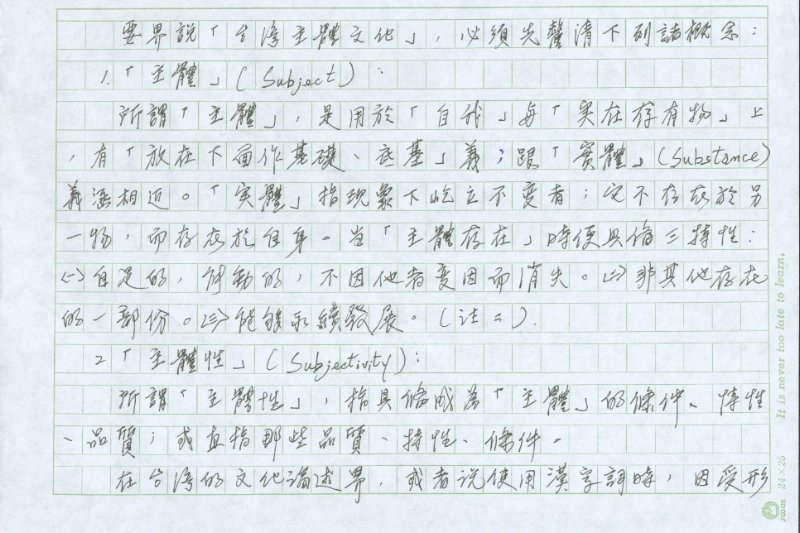 要界說「台灣主體文化」，必須先釐清下列諸概念：
1.「主體」(Subject)：
所謂「主體」，是用於「自我」與「実在存有物」上
，有「放在下面作基礎、底基」義；跟「實體」(Substance)
義涵相近。「実體」指現象下屹立不变者；它不存在於另
一物，而存在於自身。当「主體存在」時便具備三特性：
㈠自足的，能動的，不因他者变因而消失。㈡非其他存在
的一部份。㈢能夠永續發展。(註二).
2「主體性」(Subjectivity)：
所謂「主體性」，指具備成為「主體」的條件、特性
、品質；或直指那些品質、特性、條件。
在台湾的文化論述界，或者说使用漢字詞時，因受形
It is never too late to learn.
24×25